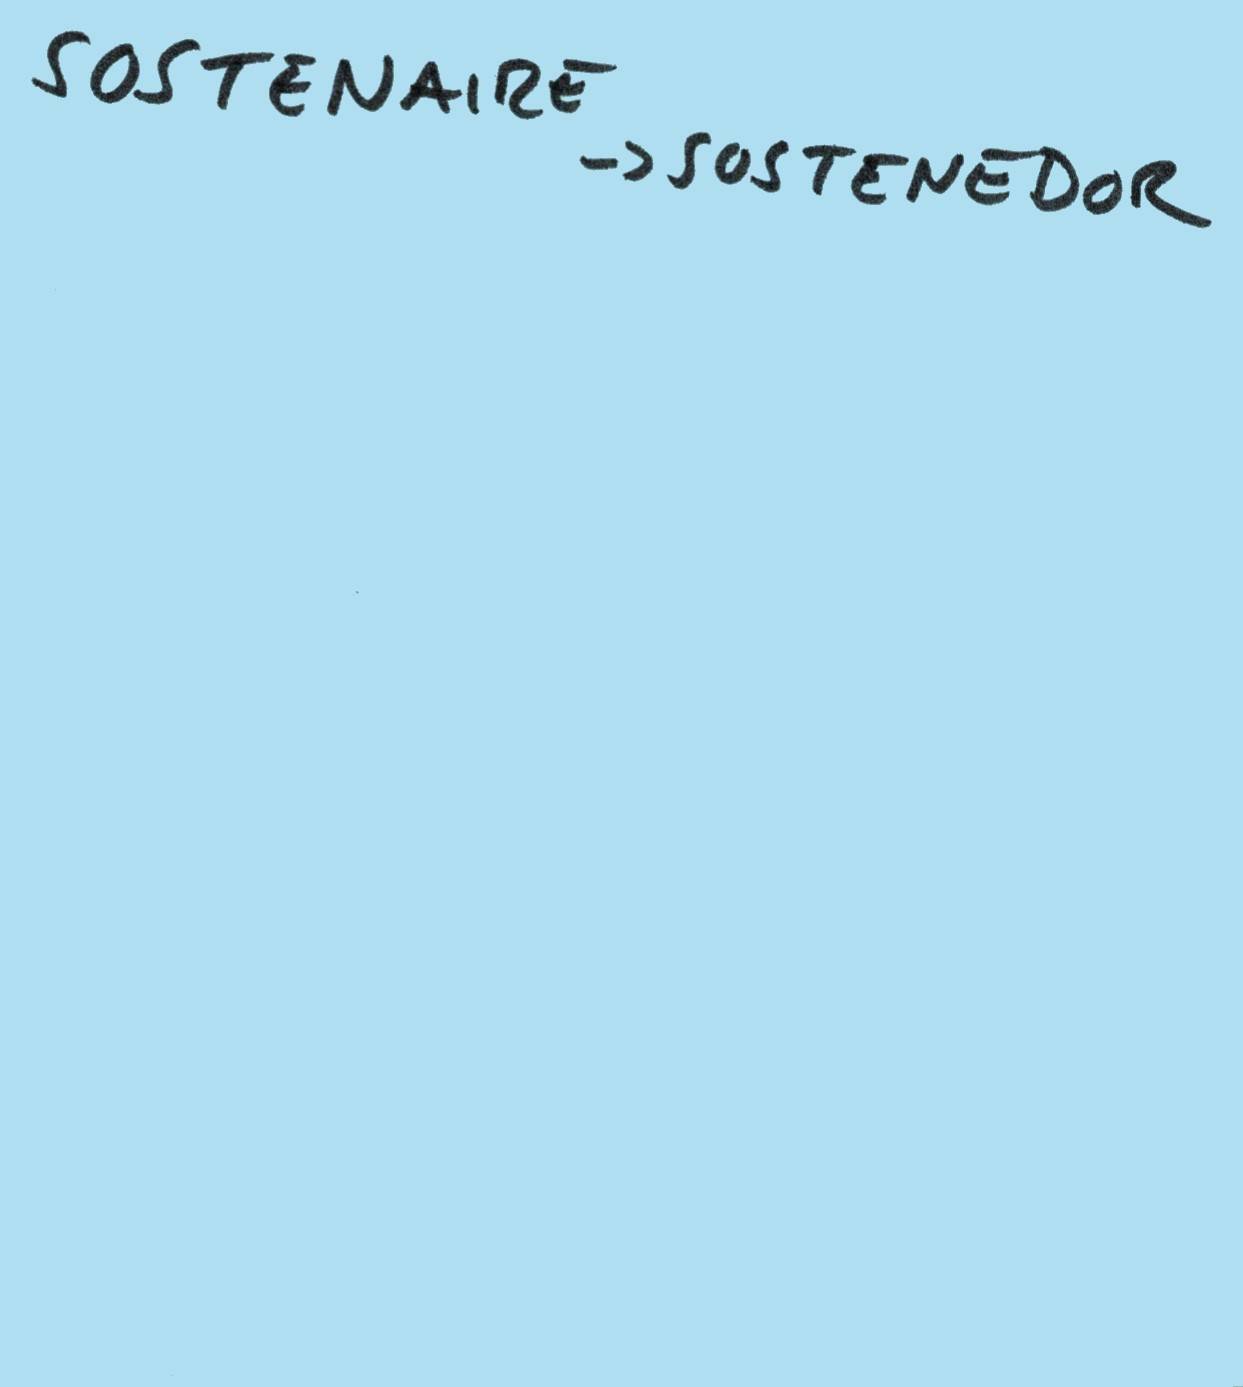 SOSTENAIRE
-> SOSTENEDOR